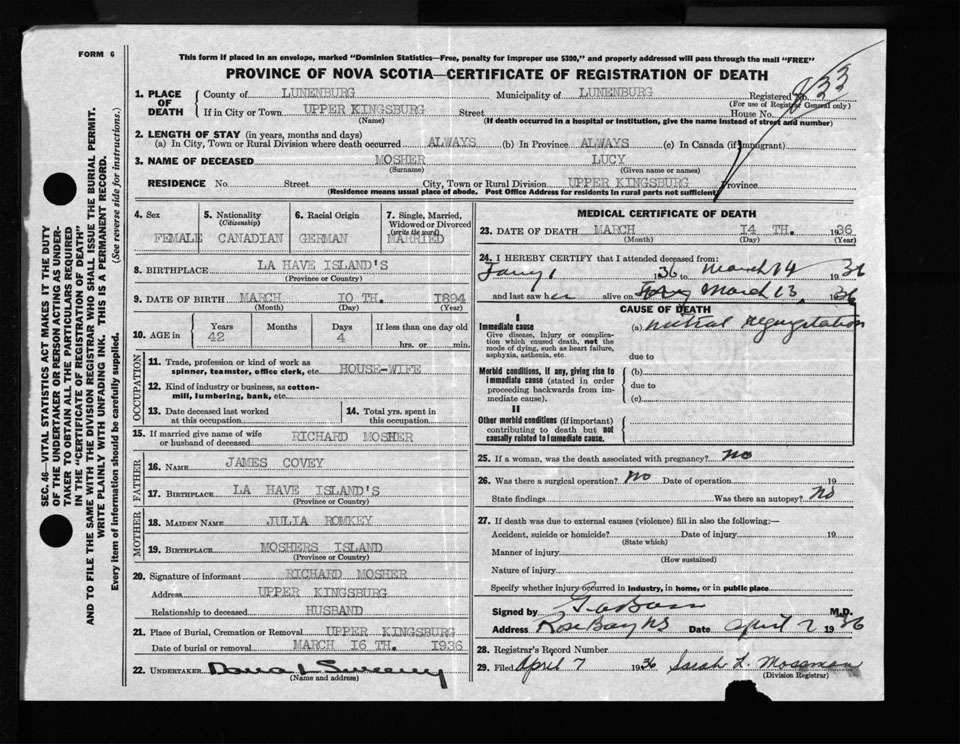 FORM 6
This form if placed in an envelope, marked "Dominion Statistics—Free, penalty for improper use $300," and properly addressed will pass through the mail "FREE"
PROVINCE OF NOVA SCOTIA—CERTIFICATE OF REGISTRATION OF DEATH
1. PLACE OF DEATH
County of LUNENBURG Municipality of LUNENBURG Registered No. 933
(For use of Registrar General only)
If in City or Town UPPER KINGSBURG Street House No.
(Name) (If death occurred in a hospital or institution, give the name instead of street and number)
2. LENGTH OF STAY (in years, months and days)
(a) In City, Town or Rural Division where death occurred ALWAYS (b) In Province ALWAYS (c) In Canada (if immigrant)
3. NAME OF DECEASED MOSHER LUCY
(Surname) (Given name or names)
RESIDENCE No. Street City, Town or Rural Division UPPER KINGSBURG Province
(Residence means usual place of abode. Post Office Address for residents in rural parts not sufficient)
4. Sex
FEMALE
5. Nationality
(Citizenship)
CANADIAN
6. Racial Origin
GERMAN
7. Single, Married, Widowed or Divorced
(write the word)
MARRIED
8. BIRTHPLACE LA HAVE ISLAND'S
(Province or Country)
9. DATE OF BIRTH MARCH 10 TH. 1894
(Month) (Day) (Year)
10. AGE in
Years Months Days If less than one day old
42 4 hrs. or min.
OCCUPATION
11. Trade, profession or kind of work as
spinner, teamster, office clerk, etc. HOUSE-WIFE
12. Kind of industry or business, as cotton-
mill, lumbering, bank, etc.
13. Date deceased last worked
at this occupation
14. Total yrs. spent in
this occupation
15. If married give name of wife
or husband of deceased RICHARD MOSHER
FATHER
16. NAME JAMES COVEY
17. BIRTHPLACE LA HAVE ISLAND'S
(Province or Country)
MOTHER
18. MAIDEN NAME JULIA ROMKEY
19. BIRTHPLACE MOSHERS ISLAND
(Province or Country)
20. Signature of informant RICHARD MOSHER
Address UPPER KINGSBURG
Relationship to deceased HUSBAND
21. Place of Burial, Cremation or Removal UPPER KINGSBURG
Date of burial or removal MARCH 16 TH. 1936
22. UNDERTAKER Sweeny
(Name and address)
MEDICAL CERTIFICATE OF DEATH
23. DATE OF DEATH MARCH 14 TH. 1936
(Month) (Day) (Year)
24. I HEREBY CERTIFY that I attended deceased from:
1 1936 to March 14 1936
and last saw her alive on March 13, 1936
CAUSE OF DEATH
I
Immediate cause
Give disease, injury or complica-
tion which caused death, not the
mode of dying, such as heart failure,
asphyxia, asthenia, etc.
(a) mitral regurgitation
due to
Morbid conditions, if any, giving rise to
immediate cause (stated in order
proceeding backwards from im-
mediate cause).
(b)
due to
(c)
II
Other morbid conditions (if important)
contributing to death but not
causally related to immediate cause.
25. If a woman, was the death associated with pregnancy? no
26. Was there a surgical operation? no Date of operation 19
State findings Was there an autopsy? no
27. If death was due to external causes (violence) fill in also the following:—
Accident, suicide or homicide? Date of injury 19
(State which)
Manner of injury
(How sustained)
Nature of injury
Specify whether injury occurred in industry, in home, or in public place
Signed by M.D.
Address Rose Bay NS Date April 7 1936
28. Registrar's Record Number
29. Filed April 7 1936 Sarah L. Mossman
(Division Registrar)
SEC. 46—VITAL STATISTICS ACT MAKES IT THE DUTY
OF THE UNDERTAKER OR PERSON ACTING AS UNDER-
TAKER TO OBTAIN ALL THE PARTICULARS REQUIRED
IN THE "CERTIFICATE OF REGISTRATION OF DEATH"
AND TO FILE THE SAME WITH THE DIVISION REGISTRAR WHO SHALL ISSUE THE BURIAL PERMIT.
WRITE PLAINLY WITH UNFADING INK. THIS IS A PERMANENT RECORD.
Every item of information should be carefully supplied. (See reverse side for instructions.)